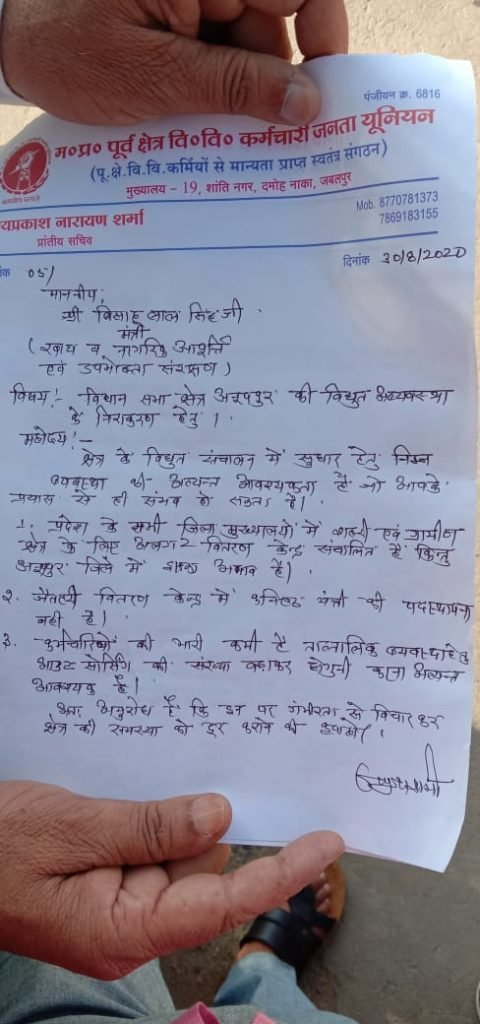 पंजीयन क्र. 6816
म०प्र० पूर्व क्षेत्र वि०वि० कर्मचारी जनता यूनियन
(पू.क्षे.वि.वि.कर्मियों से मान्यता प्राप्त स्वतंत्र संगठन)
मुख्यालय – 19, शांति नगर, दमोह नाका, जबलपुर
Mob. 8770781373
7869183155
यप्रकाश नारायण शर्मा
प्रांतीय सचिव
दिनांक 30/8/2020
ांक 05/
माननीय,
श्री बिसाहू लाल सिंह जी
मंत्री
(खाद्य व नागरिक आपूर्ति
एवं उपभोक्ता संरक्षण)
विषय :- विधान सभा क्षेत्र अनूपपुर की विद्युत अव्यवस्था
के निराकरण हेतु।
महोदय :-
क्षेत्र के विद्युत संचालन में सुधार हेतु निम्न
व्यवस्था की अत्यन्त आवश्यकता है जो आपके
प्रयास से ही संभव हो सकता है।
1. प्रदेश के सभी जिला मुख्यालयों में शहरी एवं ग्रामीण
क्षेत्र के लिए अलग 2 वितरण केन्द्र संचालित है किन्तु
अनूपपुर जिले में इसका अभाव है।
२. जैतहरी वितरण केन्द्र में कनिष्ठ यंत्री की पदस्थापना
नही है।
३. कर्मचारियों की भारी कमी है तात्कालिक व्यवस्था हेतु
आउट सोर्सिंग की संख्या बढाकर दोगुनी करना अत्यन्त
आवश्यक है।
अतः अनुरोध है कि इन पर गंभीरता से विचार कर
क्षेत्र की समस्या को दूर करने की